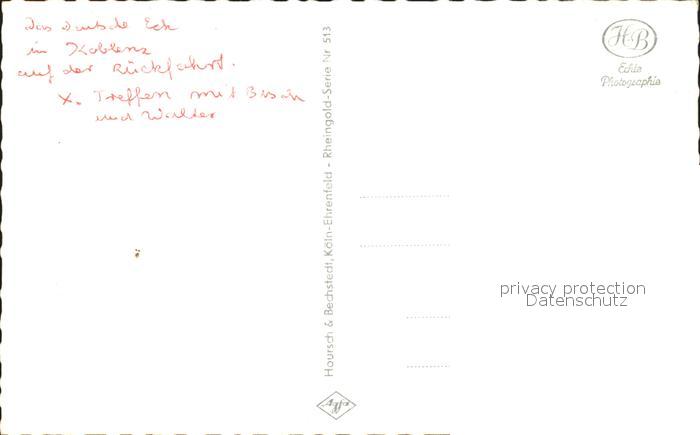 Das Deutsche Eck
in Koblenz
auf der Rückfahrt.
X. Treffen mit
und Walter
Hoursch & Bechstedt, Köln-Ehrenfeld - Rheingold-Serie Nr 513
Agfa
HB
Echte
Photographie
privacy protection
Datenschutz